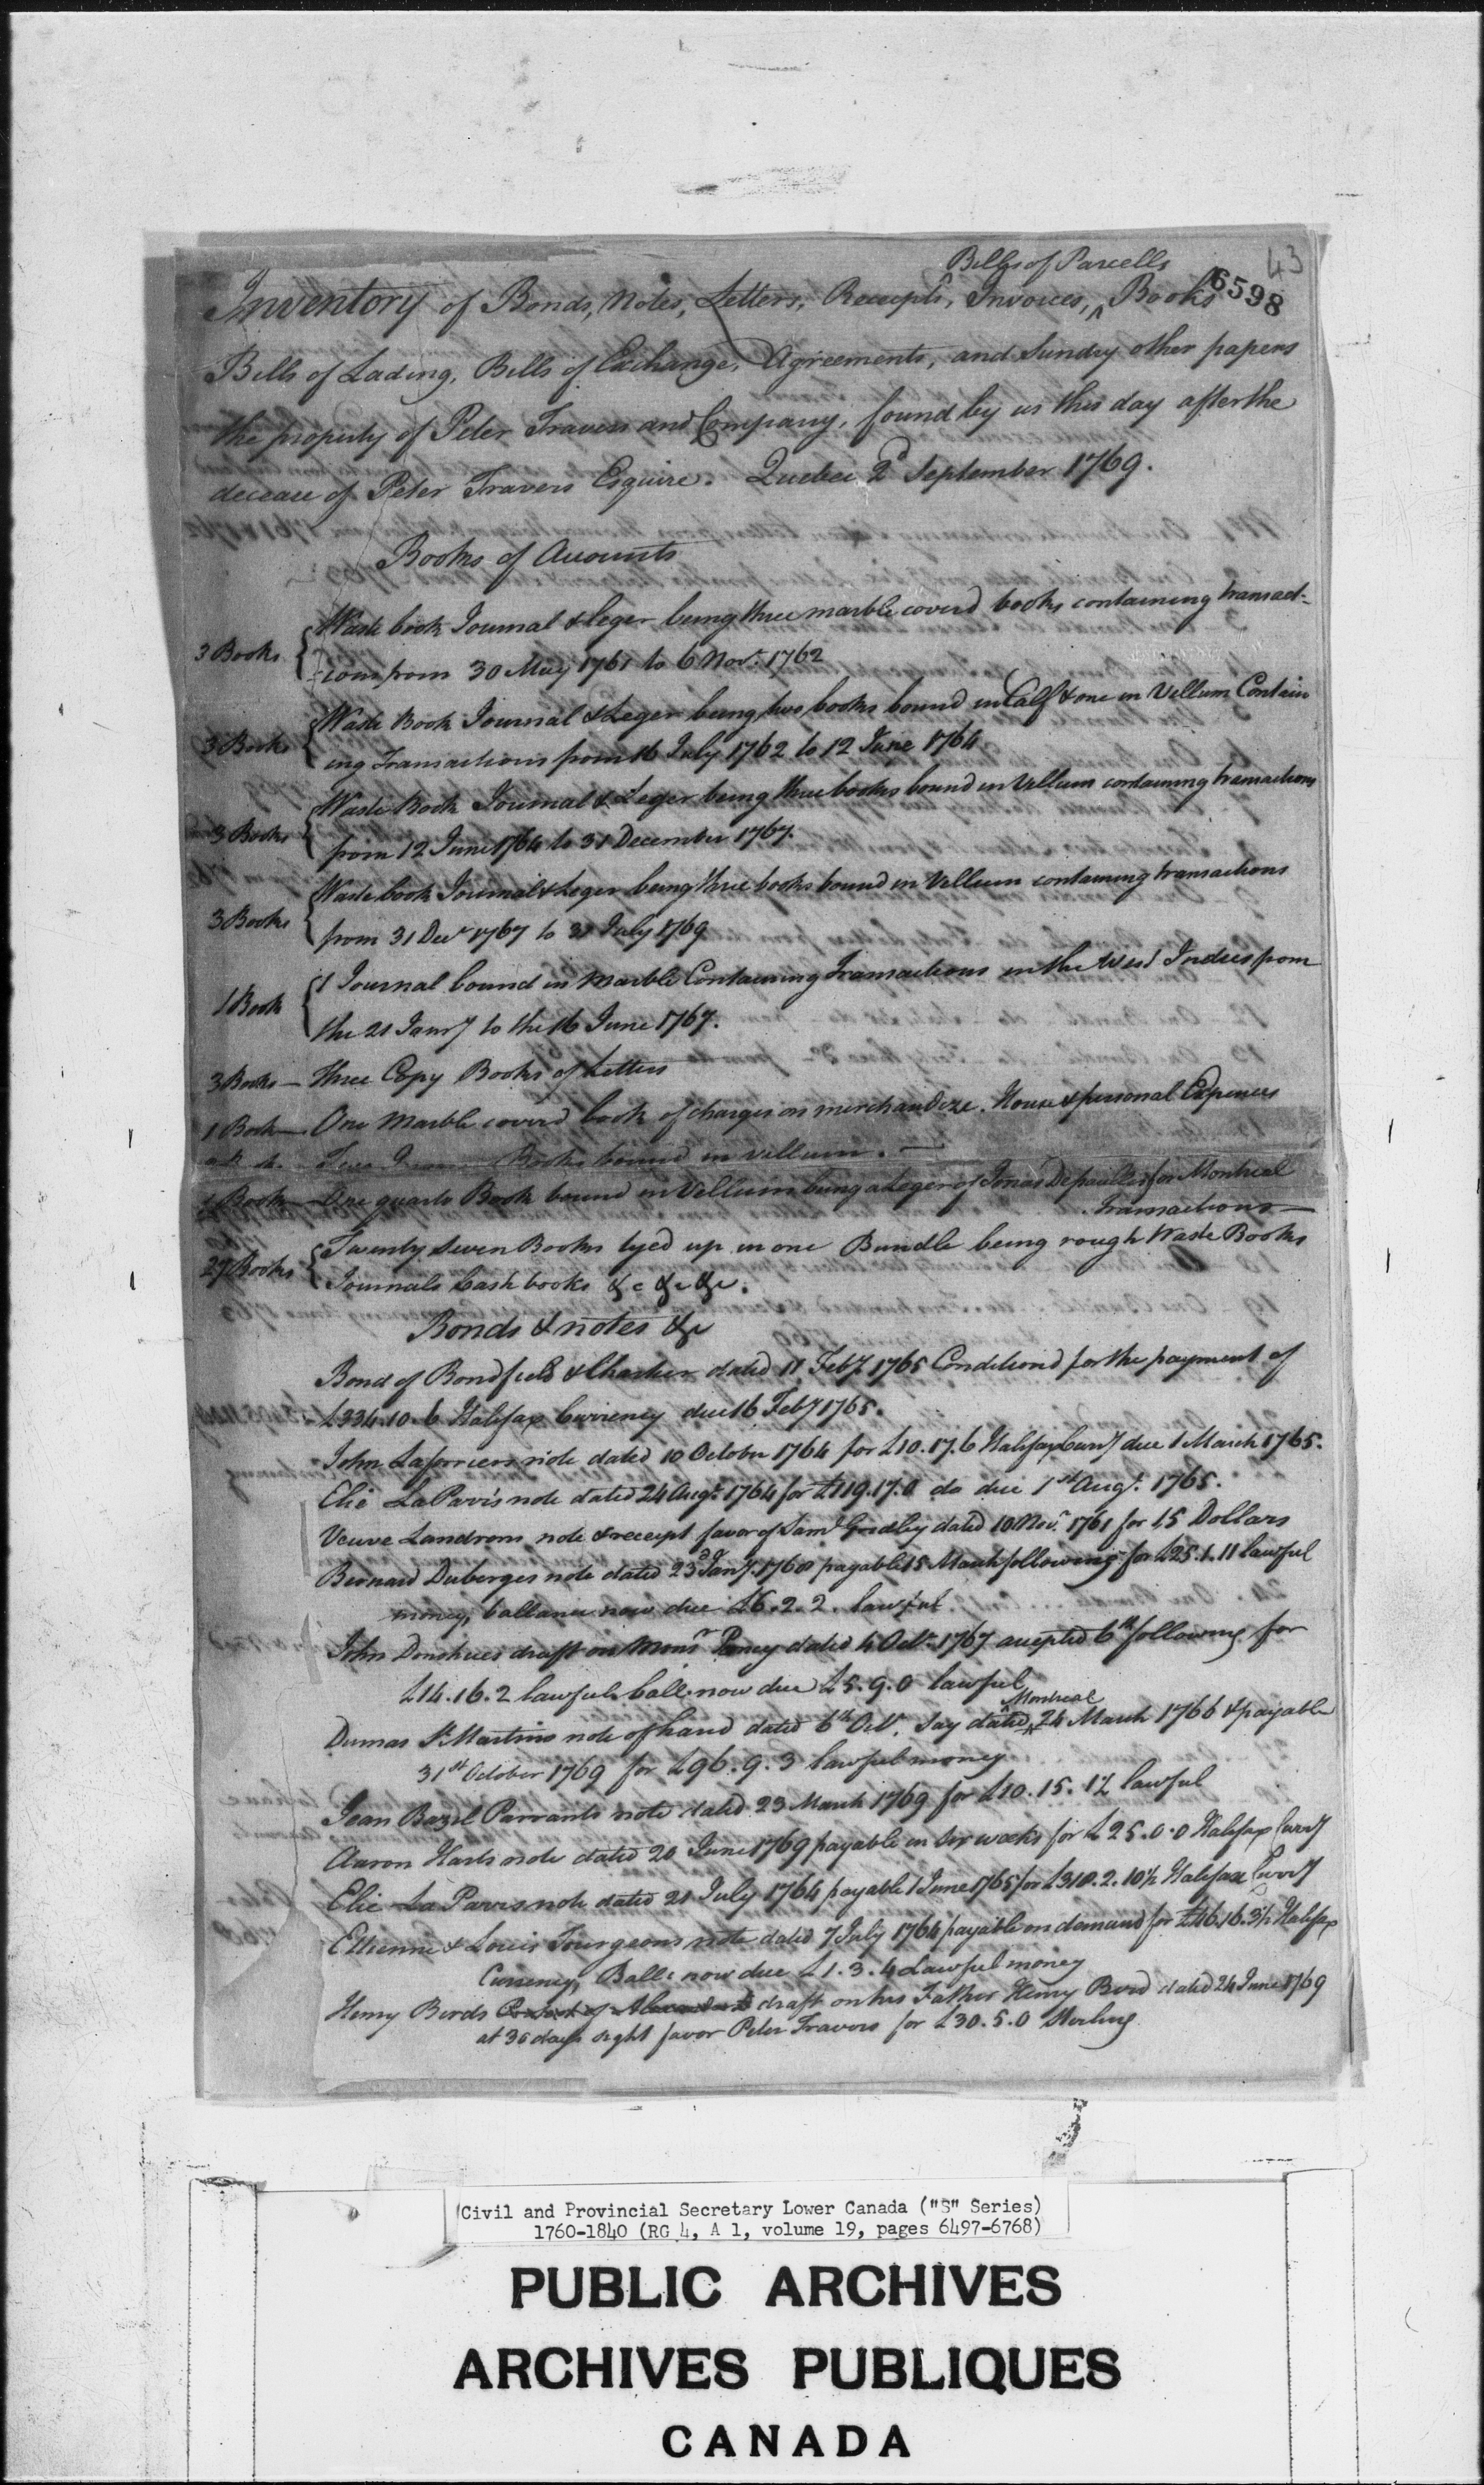 43
6598
Bills of Parcells
Inventory of Bonds, Notes, Letters, Receipts, Invoices, ^ Books
Bills of Lading, Bills of Exchange, Agreements, and Sundry other papers
the property of Peter Travers and Company, found by us this day after the
decease of Peter Travers Esquire. Quebec 2d September 1769.
Books of Accounts
3 Books { Waste book Journal & leger being three marble coverd books containing transact-
-ions from 30 May 1761 to 6 Novr. 1762
3 Books { Waste Book Journal & Leger being two books bound in Calf & one in Vellum Contain
ing Transactions from 16 July 1762 to 12 June 1764
3 Books { Waste Book Journal & Leger being three books bound in Vellum containing transactions
from 12 June 1764 to 31 December 1767.
3 Books { Waste book Journal & Leger being three books bound in Vellum containing transactions
from 31 Decr 1767 to 31 July 1769
1 Book { 1 Journal bound in Marble Containing Transactions in the West Indies from
the 21 Janry to the 16 June 1767.
3 Books — Three Copy Books of Letters
1 Book — One Marble coverd book of charges on merchandize. House & personal Expences
Two Books bound in vellum. —
1 Book — One quarto Book bound in Vellum being a Leger of Jonas Depaulkes for Montreal
Transactions —
27 Books { Twenty Seven Books tyed up in one Bundle being rough Waste Books
Journals Cash books &c &c &c.
Bonds & notes &c
Bond of Bondfield & Chartier dated 11 Feby 1765 Conditiond for the payment of
£334.10.6 Halifax Currency due 16 Feby 1765.
John Laforriers note dated 10 October 1764 for £10.17.6 Halifax Curry due 1 March 1765.
Elie LaParis note dated 24 Augt. 1764 for £119.17.0 do due 1st Augt. 1765.
Veuve Landrons note & receipt favor of Saml Gridley dated 10 Novr. 1761 for 15 Dollars
Bernard Duberges note dated 23d Jany. 1768 payable 15 March following for £25.1.11 lawful
money, ballance now due £6.2.2. lawful
John Donohues draft on Monsr Pancy dated 4 Octr 1767 accepted 6th following for
£14.16.2 lawful Ball: now due £5.9.0 lawful
Montreal
Dumas St Martins note of hand dated 6th Octr. Say dated ^ 24 March 1766 & payable
31st October 1769 for £96.9.3 lawful money
Jean Bazil Parrants note dated 23 March 1769 for £10.15.1½ lawful
Aaron Harts note dated 20 June 1769 payable in Six weeks for £25.0.0 Halifax Curry
Elie La Parris note dated 21 July 1764 payable 1 June 1765 for £318.2.10½ Halifax Curry
Ettienne & Louis Tourgeons note dated 7 July 1764 payable on demand for £46.16.3½ Halifax
Currency, Balle now due £1.3.4 Lawful money
Henry Birds draft on his Father Henry Bird dated 24 June 1769
at 30 days sight favor Peter Travers for £30.5.0 Sterling
Civil and Provincial Secretary Lower Canada ("S" Series)
1760-1840 (RG 4, A 1, volume 19, pages 6497-6768)
PUBLIC ARCHIVES
ARCHIVES PUBLIQUES
CANADA